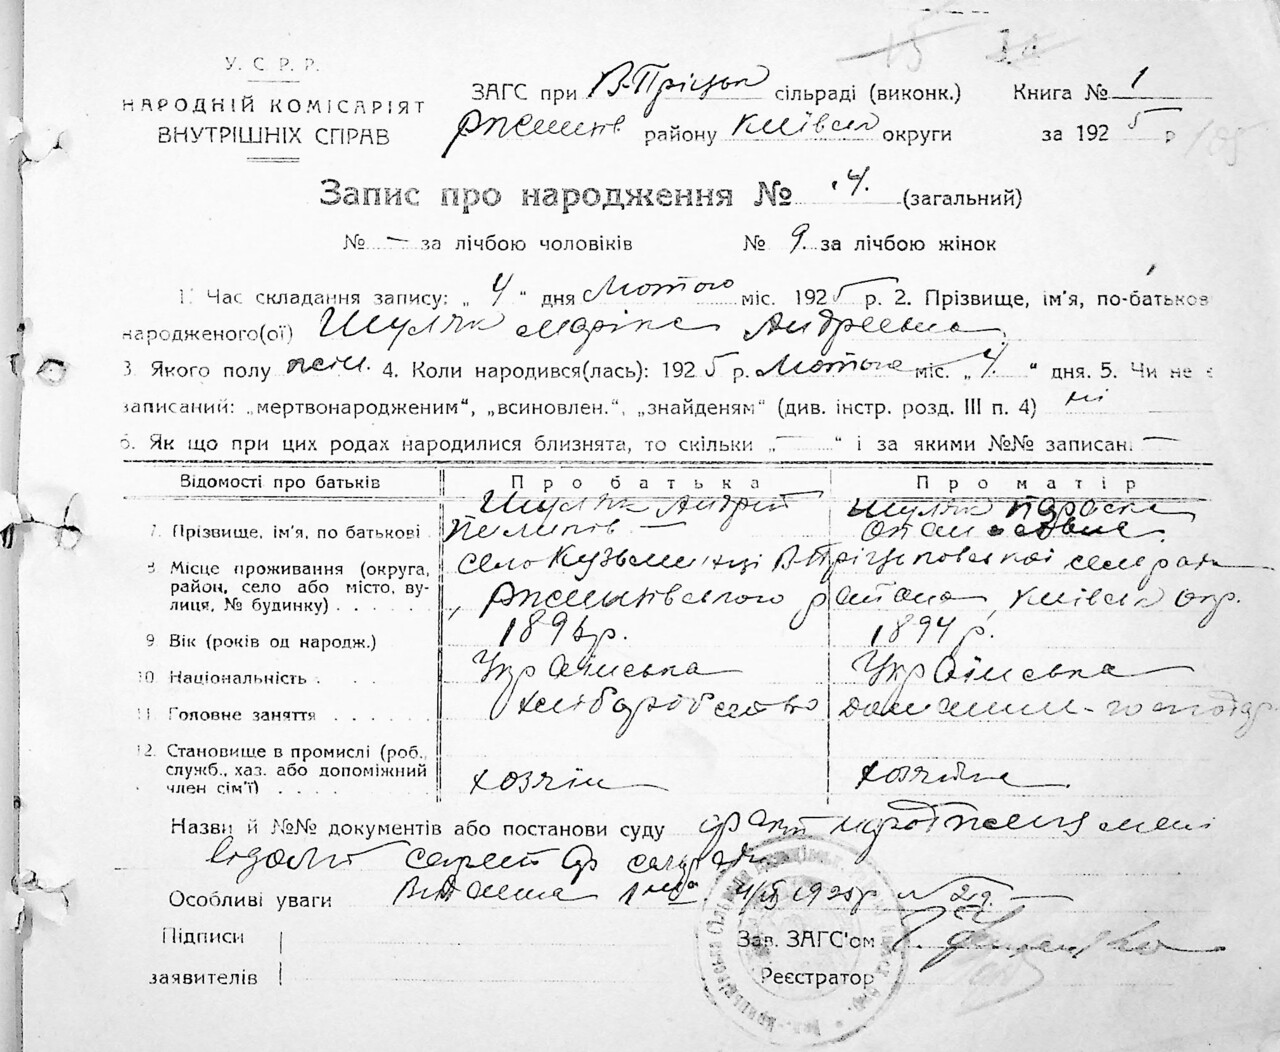 У. С. Р. Р.
НАРОДНІЙ КОМІСАРІЯТ
ВНУТРІШНІХ СПРАВ
ЗАГС при В-Пріцьк сільраді (виконк.) Книга № 1
Ржищів району Київськ округи за 1925 р
Запис про народження № 4. (загальний)
№ — за лічбою чоловіків № 9. за лічбою жінок
1. Час складання запису: „ 4 “ дня Лютого міс. 1925 р. 2. Прізвище, ім'я, по-батьков
народженого(ої) Шуляк Андреевна
3. Якого полу жін. 4. Коли народився(лась): 1925 р. Лютого міс. „ 4. “ дня. 5. Чи не є
записаний: „мертвонародженим“, „всиновлен.“, „знайденям“ (див. інстр. розд. III п. 4) ні
6. Як що при цих родах народилися близнята, то скільки „ — “ і за якими №№ записан. —
Відомості про батьків Про батька Про матір
Шуляк Андрій Шуляк Параска
7. Прізвище, ім'я, по батькові Пилипов —
8 Місце проживання (округа, район, село або місто, вулиця, № будинку) село Кузьминці В Пріцьковської сельради
Ржищівського района, Київськ окр.
9 Вік (років од народж.) 1894 р.
10 Національність Українська Українська
11. Головне заняття хліборобство
12. Становище в промислі (роб., служб., хаз. або допоміжний член сім'ї) хозяін хозяйка
Назви й №№ документів або постанови суду факт мені
секрет сельради
Особливі уваги 1925 р
Підписи
заявителів
Зав. ЗАГС'ом
Реєстратор